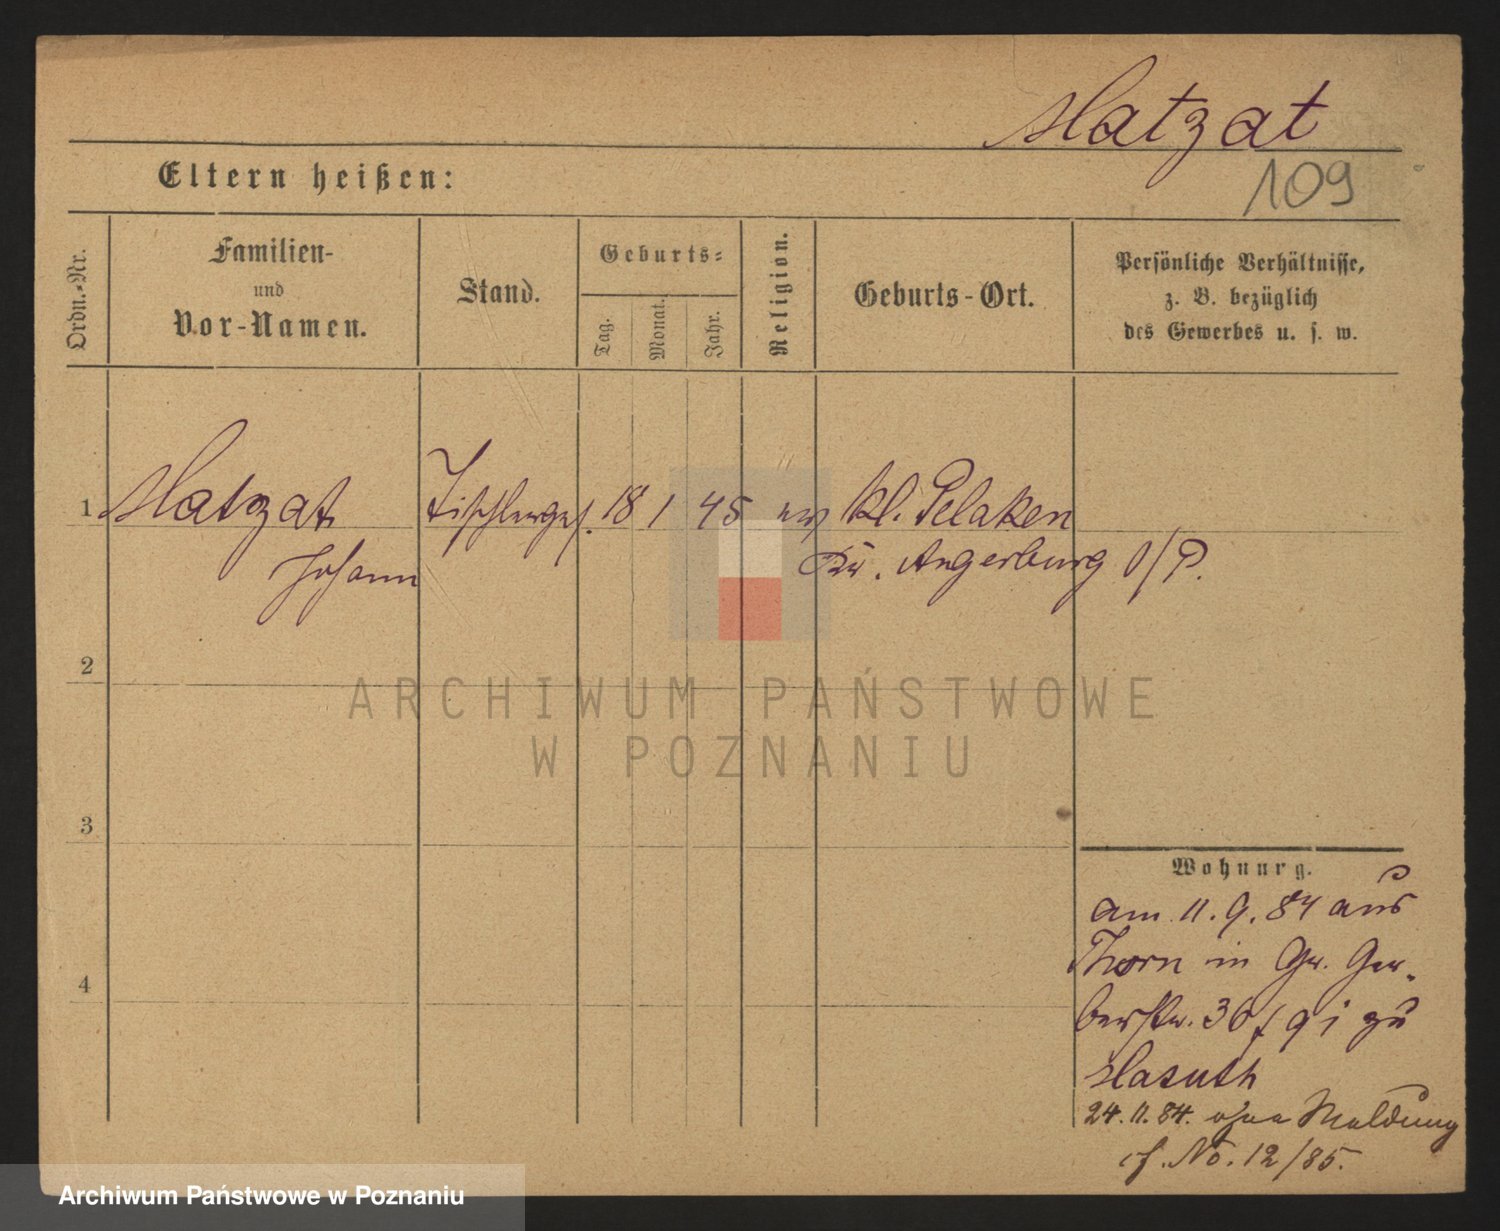 Matzat
109
Eltern heißen:
Ordn.-Nr.
Familien-
und
Vor-Namen.
Stand.
Geburts-
Tag.
Monat.
Jahr.
Religion.
Geburts-Ort.
Persönliche Verhältnisse,
z. B. bezüglich
des Gewerbes u. s. w.
1 Matzat Tischlerges. 18 1 45 ev Kl. Pelaken
Johann Kr. Angerburg O/P.
2
3
4
Wohnung.
am 11.9.84 aus
Thorn in Gr. Ger-
berstr. 36 zu
Masuth
24.11.84. ohne Meldung
cf. No. 12/85.
ARCHIWUM PAŃSTWOWE
W POZNANIU
Archiwum Państwowe w Poznaniu